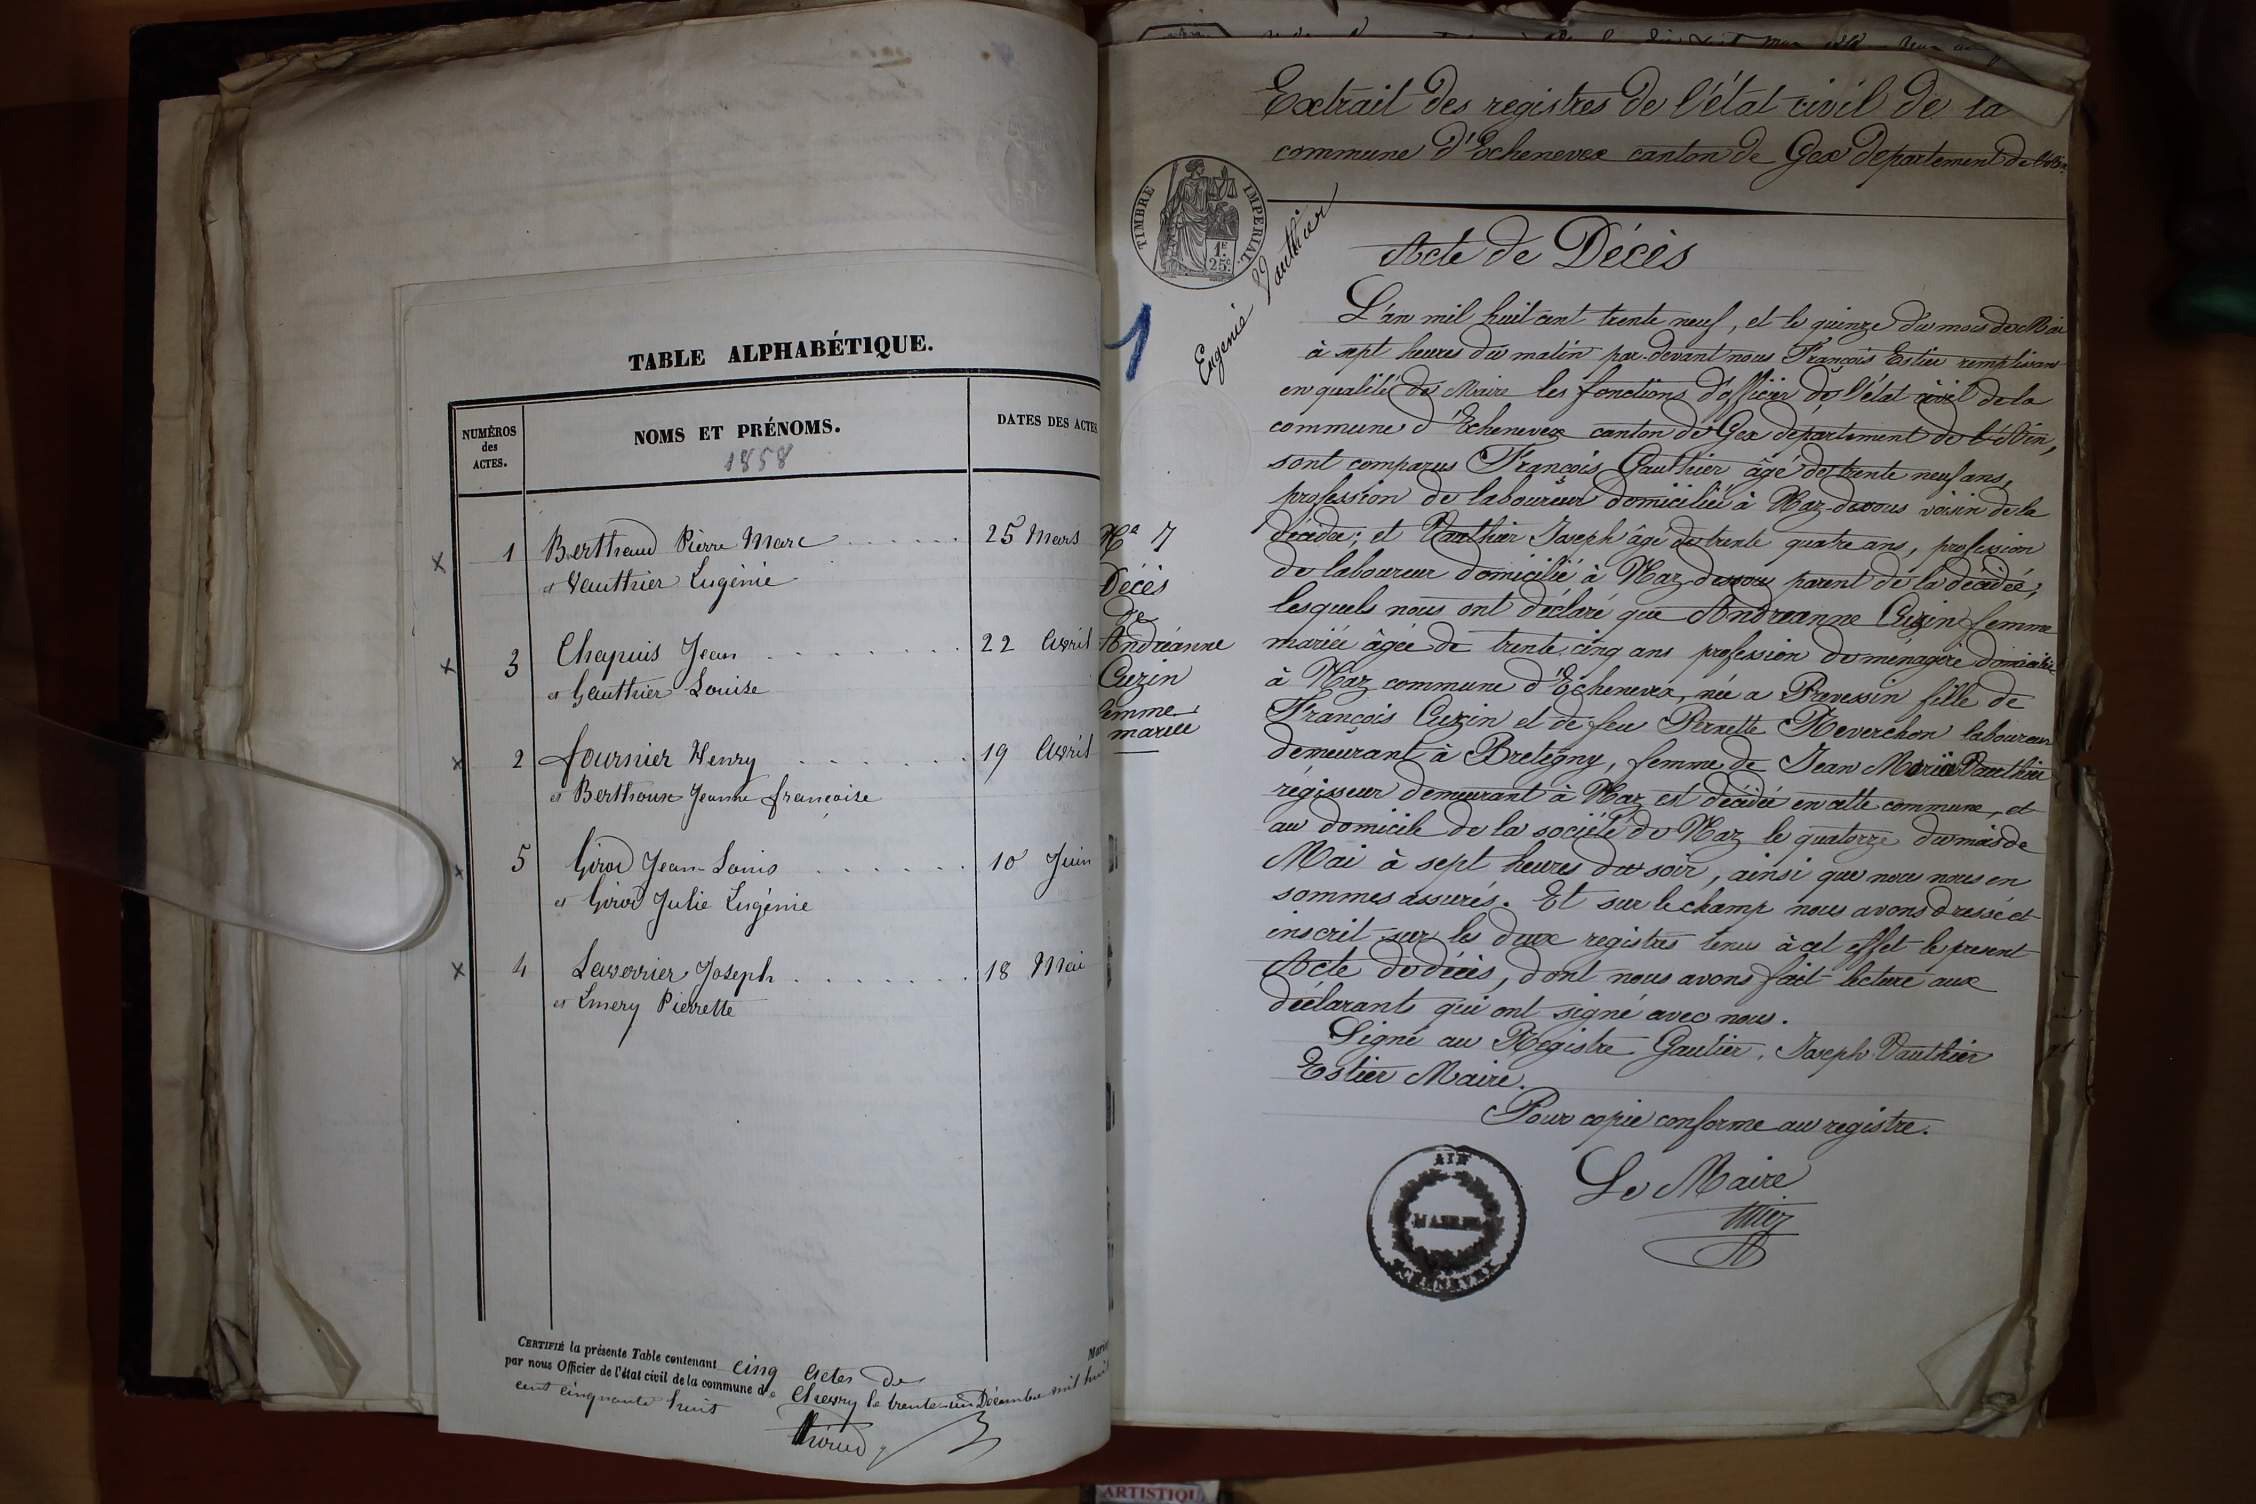 TABLE ALPHABÉTIQUE.
NUMÉROS des ACTES.
NOMS ET PRÉNOMS.
1858
DATES DES ACTES
1 Berthaud Pierre Marc 25 Mars
et Vauthier Eugénie
3 Chapuis Jean 22 Avril
et Gauthier Louise
2 fournier Henry 19 Avril
et Berthoux Jeanne françoise
5 Girod Jean-Louis 10 Juin
et Girod Julie Eugénie
4 Laverrier Joseph 18 Mai
et Emery Pierrette
CERTIFIÉ la présente Table contenant cinq Actes de Maria
par nous Officier de l'état civil de la commune de Chevry le trente-un Décembre mil huit
cent cinquante huit
Extrait des registres de l'état civil de la
commune d'Echenevex canton de Gex departement de l'Ain
TIMBRE IMPERIAL.
1F 25c
Eugénie Vauthier
1
Acte de Décès
L'an mil huit cent trente neuf, et le quinze du mois de Mai
à sept heures du matin par-devant nous François Estier remplissant
en qualité de Maire les fonctions d'officier de l'état civil de la
commune d'Echenevex canton de Gex département de l'Ain,
sont comparus François Gauthier âgé de trente neuf ans,
profession de laboureur domicilié à Naz-dessous voisin de la
décédée; et Vauthier Joseph âgé de trente quatre ans, profession
de laboureur domicilié à Naz-dessous parent de la décédée;
lesquels nous ont déclaré que Andreanne Cuzin femme
mariée âgée de trente cinq ans profession de menagère domiciliée
à Naz commune d'Echenevex, née a Prevessin fille de
François Cuzin et de feu Pernette Reverchon laboureur
demeurant à Bretegny, femme de Jean Marie Vauthier
régisseur demeurant à Naz est décédée en cette commune, et
au domicile de la société de Naz le quatorze du mois de
Mai à sept heures du soir, ainsi que nous nous en
sommes assurés. Et sur le champ nous avons dressé et
inscrit sur les deux registres tenus à cet effet le present
Acte de décès, dont nous avons fait lecture aux
déclarants qui ont signé avec nous.
Signé au Registre Gautier, Joseph Vauthier
Estier Maire.
Pour copie conforme au registre.
Le Maire
N° 7
Décès
de
Andréanne
Cuzin
femme
mariée
AIN
MAIRIE
ECHENEVEX
ARTISTIQU